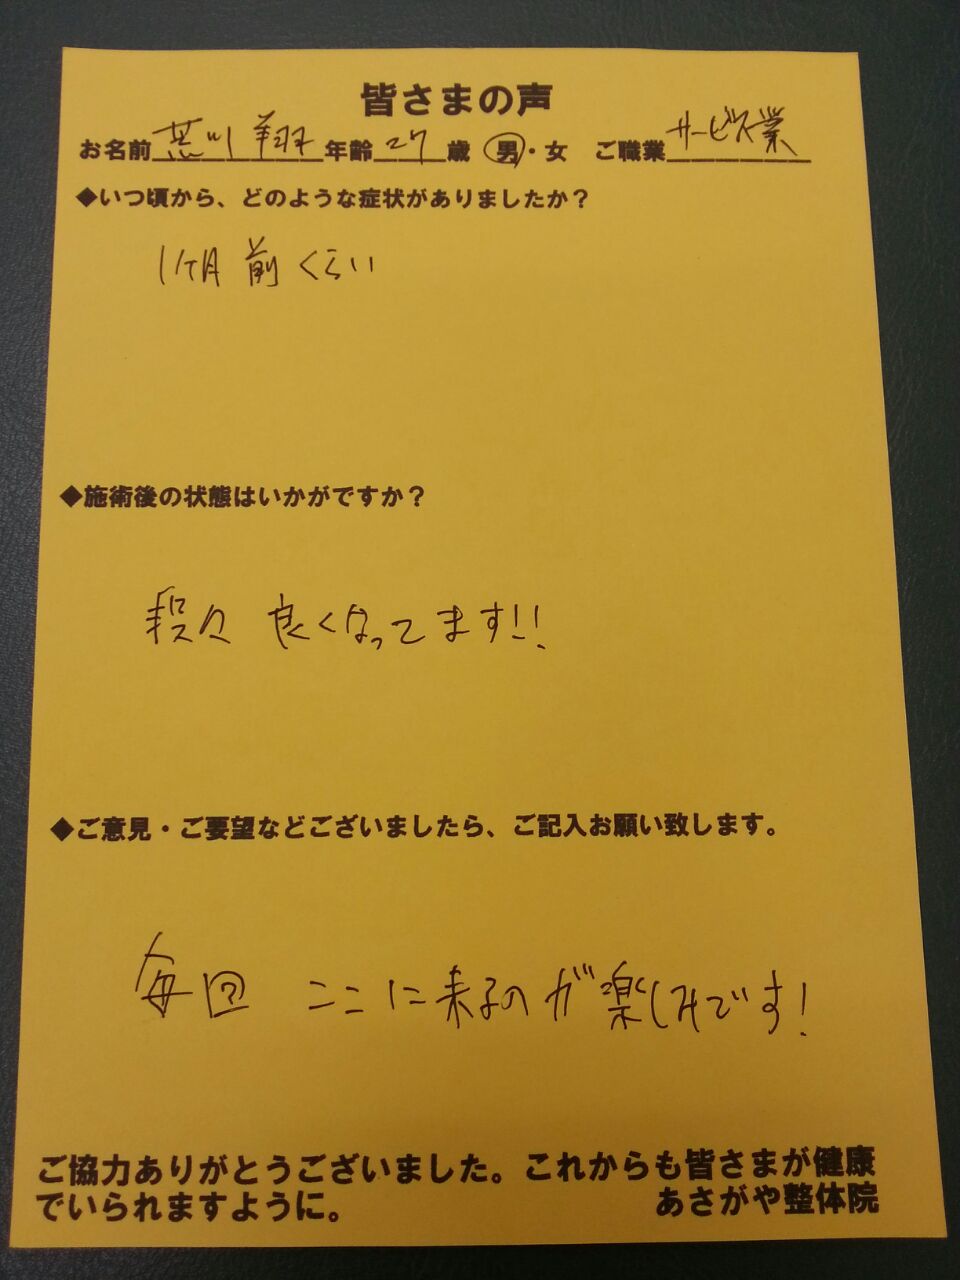 皆さまの声
お名前 荒川 翔 年齢 27 歳 男・女 ご職業 サービス業
◆いつ頃から、どのような症状がありましたか？
1ヶ月前くらい
◆施術後の状態はいかがですか？
段々 良くなってます!!
◆ご意見・ご要望などございましたら、ご記入お願い致します。
毎回 ここに来るのが楽しみです!
ご協力ありがとうございました。これからも皆さまが健康
でいられますように。 あさがや整体院